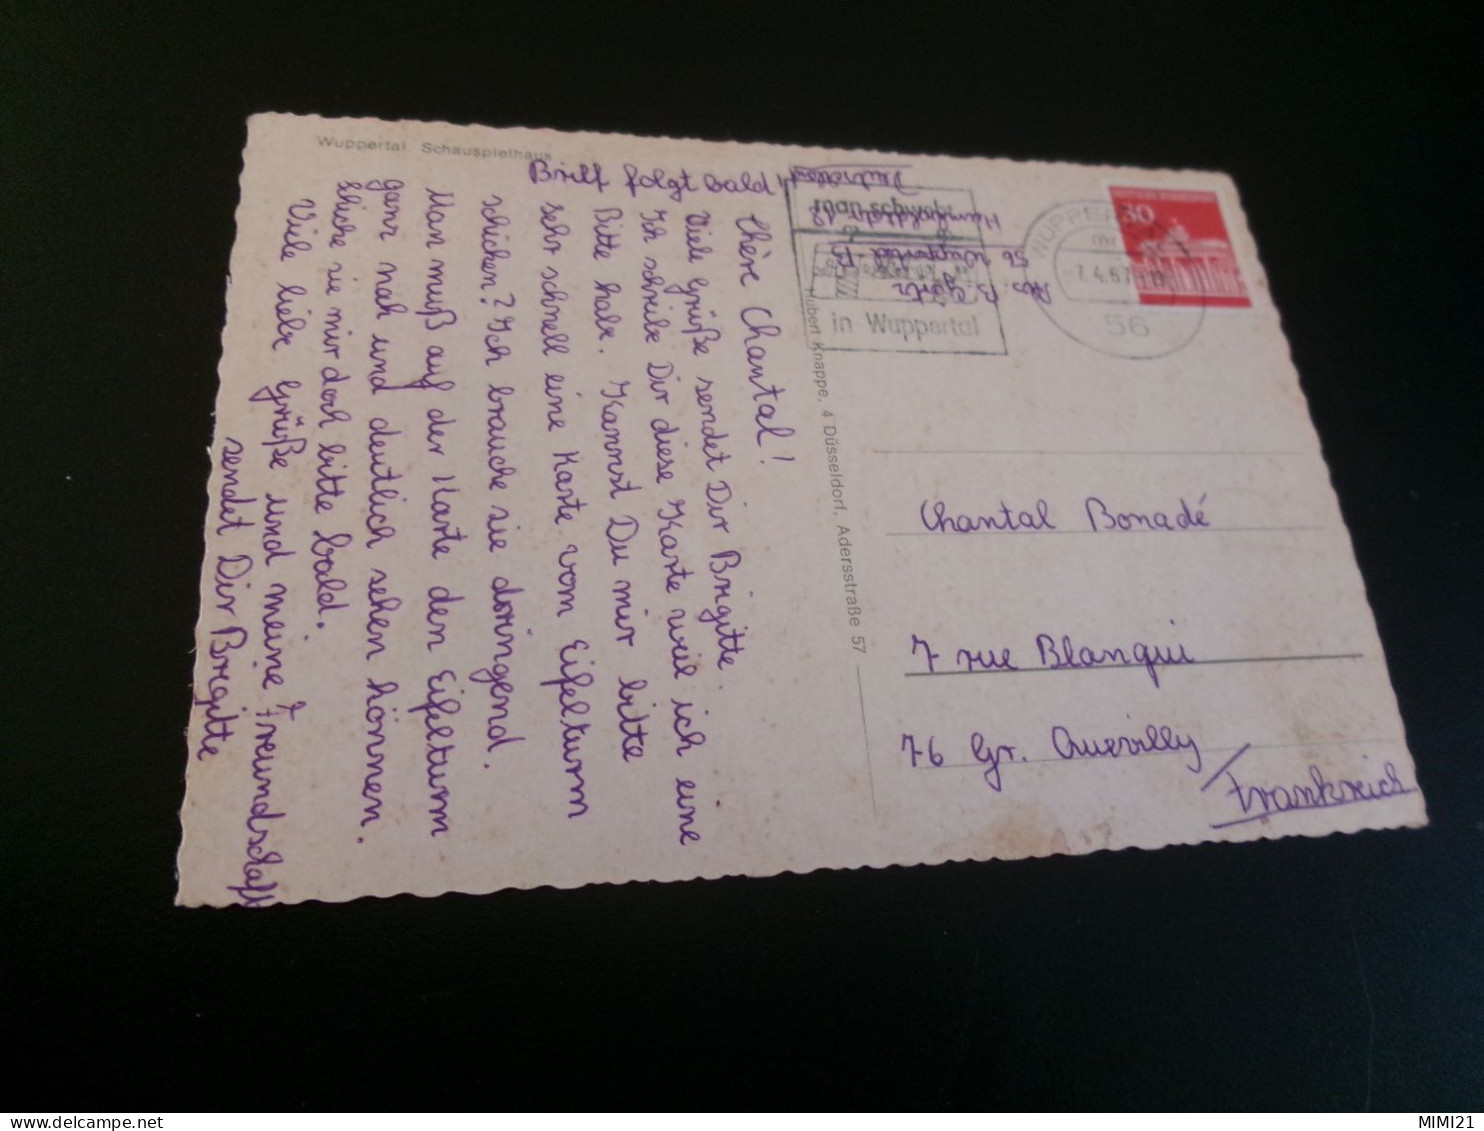 Wuppertal, Schauspielhaus
Brief folgt bald!
Chère Chantal!
Viele Grüße sendet Dir Brigitte.
Ich schreibe Dir diese Karte weil ich eine
Bitte habe. Kannst Du mir bitte
sehr schnell eine Karte vom Eifelturm
schicken? Ich brauche sie dringend.
Man muß auf der Karte den Eifelturm
ganz nah und deutlich sehen können.
Schicke sie mir doch bitte bald.
Viele liebe Grüße und meine Freundschaft
sendet Dir Brigitte
Hubert Knappe, 4 Düsseldorf, Adersstraße 57
Abs B.
56 Wuppertal-B
Humboldtstr 12
Deutschland
man schwebt
in Wuppertal
WUPPERTAL
-7.4.67
56
30
Chantal Bonadé
7 rue Blanqui
76 Gr. Quevilly
Frankreich
MIMI21